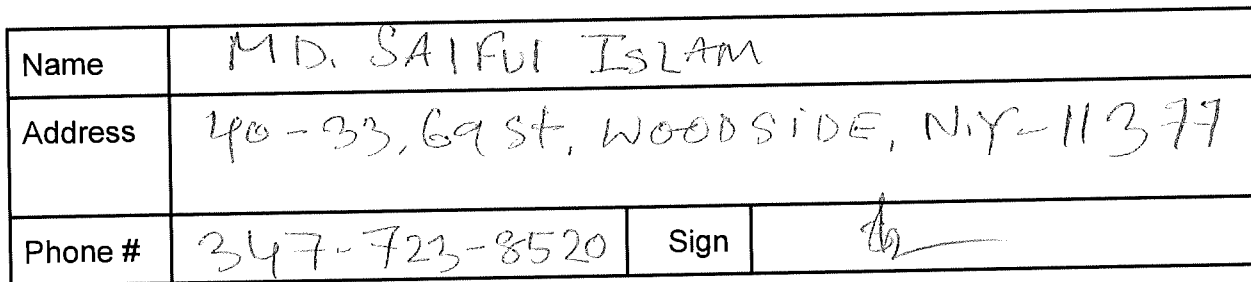 Name MD. SAIFUl ISLAM
Address 40-33, 69 St, WOODSiDE, N.Y-11377
Phone # 347-723-8520 Sign